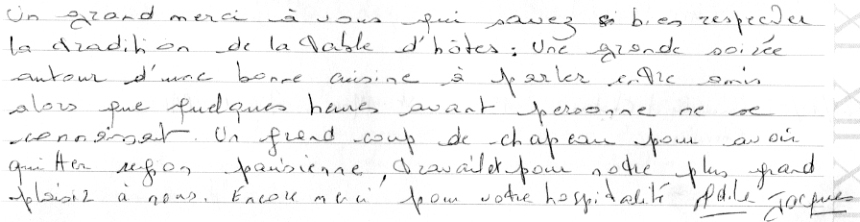 Un grand merci à vous qui savez si bien respecter
la tradition de la Table d'hôtes : Une grande soirée
autour d'une bonne cuisine à parler entre amis
alors que quelques heures avant personne ne se
connaissait. Un grand coup de chapeau pour avoir
quitter region parisienne, travail et pour notre plus grand
plaisir à nous. Encore merci pour votre hospitalité Jacques